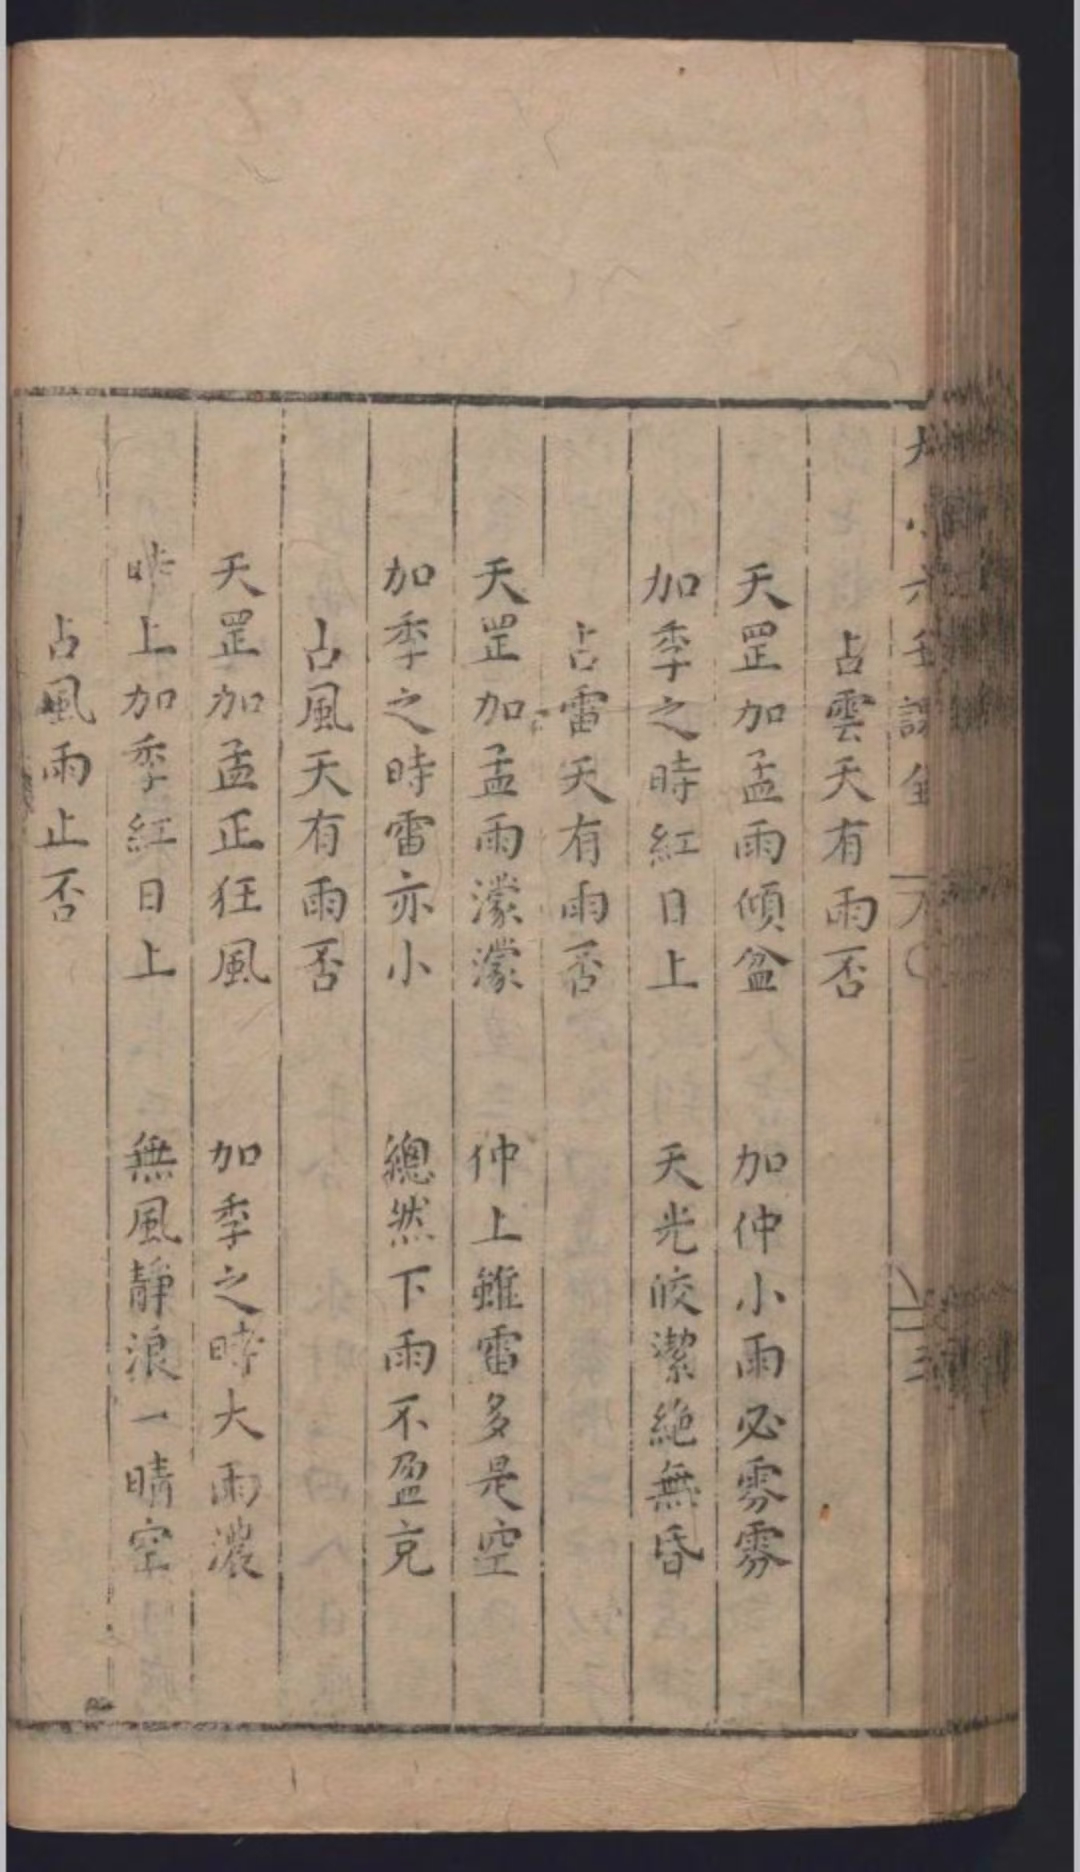 大小六壬課全
占雲天有雨否
天罡加孟雨傾盆　加仲小雨必雰雰
加季之時紅日上　天光皎潔絶無昏
占雷天有雨否
天罡加孟雨濛濛　仲上雖雷多是空
加季之時雷亦小　總然下雨不盈㐬
占風天有雨否
天罡加孟正狂風　加季之時大雨濃
昨上加季紅日上　無風靜浪一晴空
占風雨止否